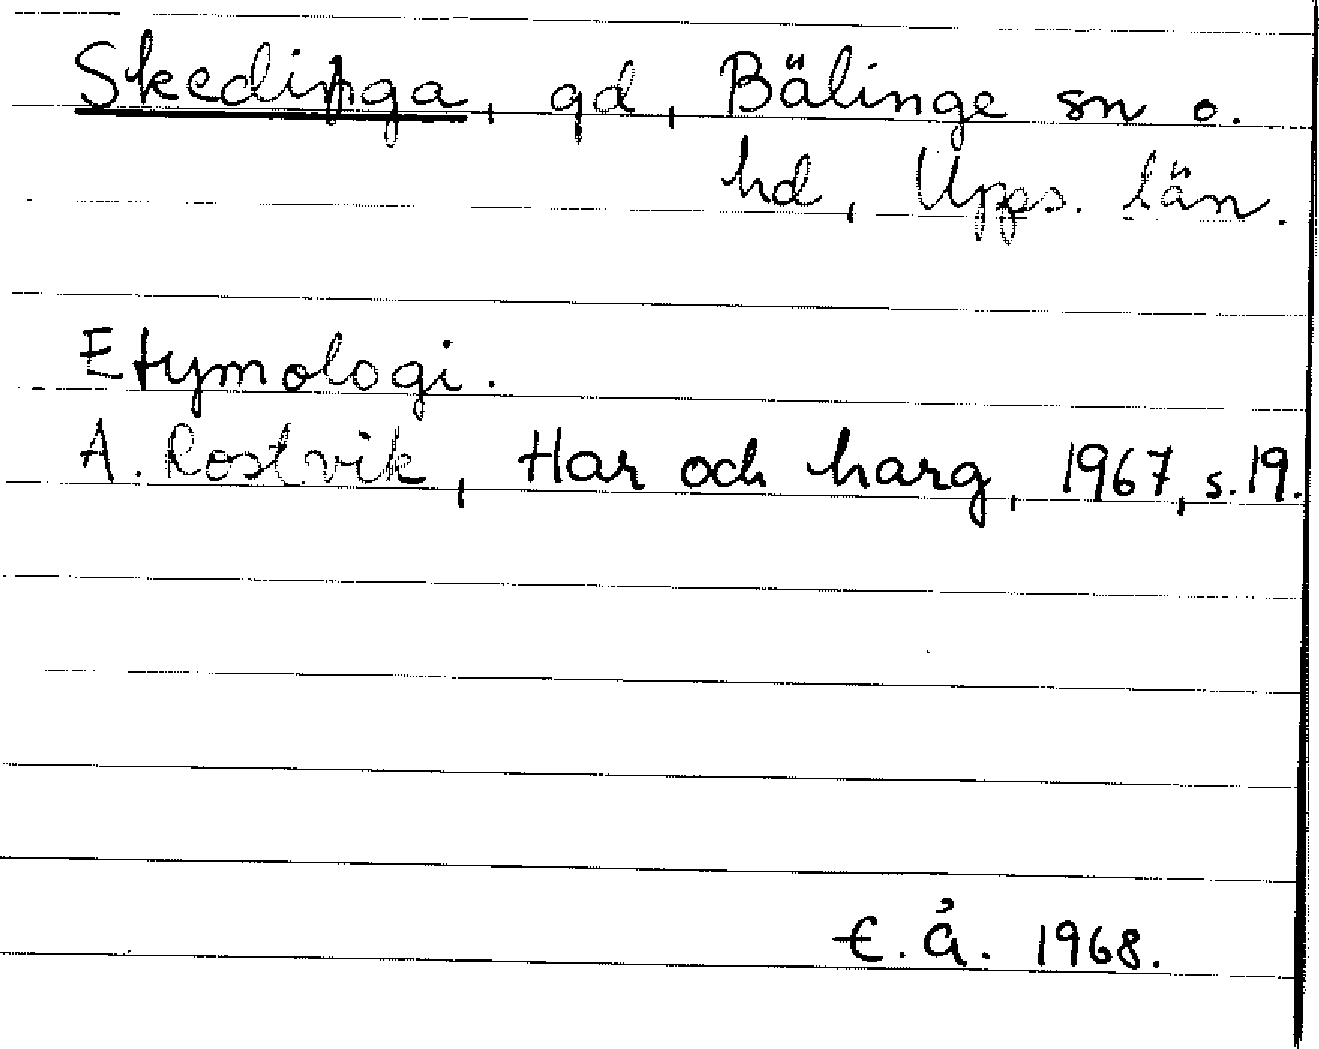 Skedinga, gd, Bälinge sn o.
hd, Upps. län.
Etymologi.
A. Rostvik, Har och harg, 1967, s. 19.
E. Å. 1968.